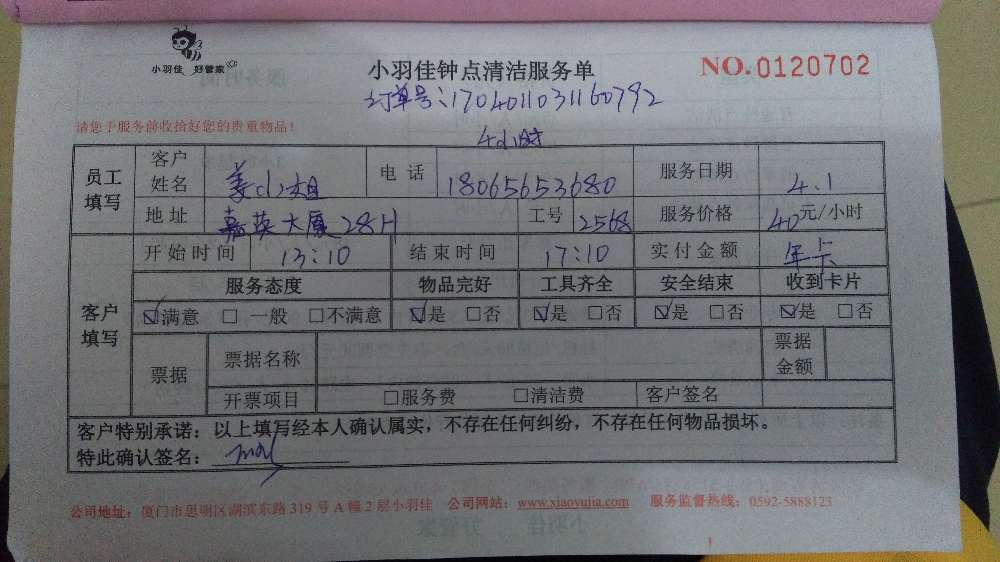 小羽佳 好管家
小羽佳钟点清洁服务单
NO.0120702
订单号:1704011031160792
请您予服务前收拾好您的贵重物品!
4小时
员工填写 客户姓名 姜小姐 电话 18065653680 服务日期 4.1
地址 嘉英大厦28H 工号 2568 服务价格 40元/小时
客户填写 开始时间 13:10 结束时间 17:10 实付金额 年卡
服务态度 物品完好 工具齐全 安全结束 收到卡片
☑满意 □一般 □不满意 ☑是 □否 ☑是 □否 ☑是 □否 ☑是 □否
票据 票据名称 票据金额
开票项目 □服务费 □清洁费 客户签名
客户特别承诺：以上填写经本人确认属实，不存在任何纠纷，不存在任何物品损坏。
特此确认签名：
公司地址：厦门市思明区湖滨东路319号A幢2层小羽佳 公司网站：www.xiaoyujia.com 服务监督热线：0592-5888123